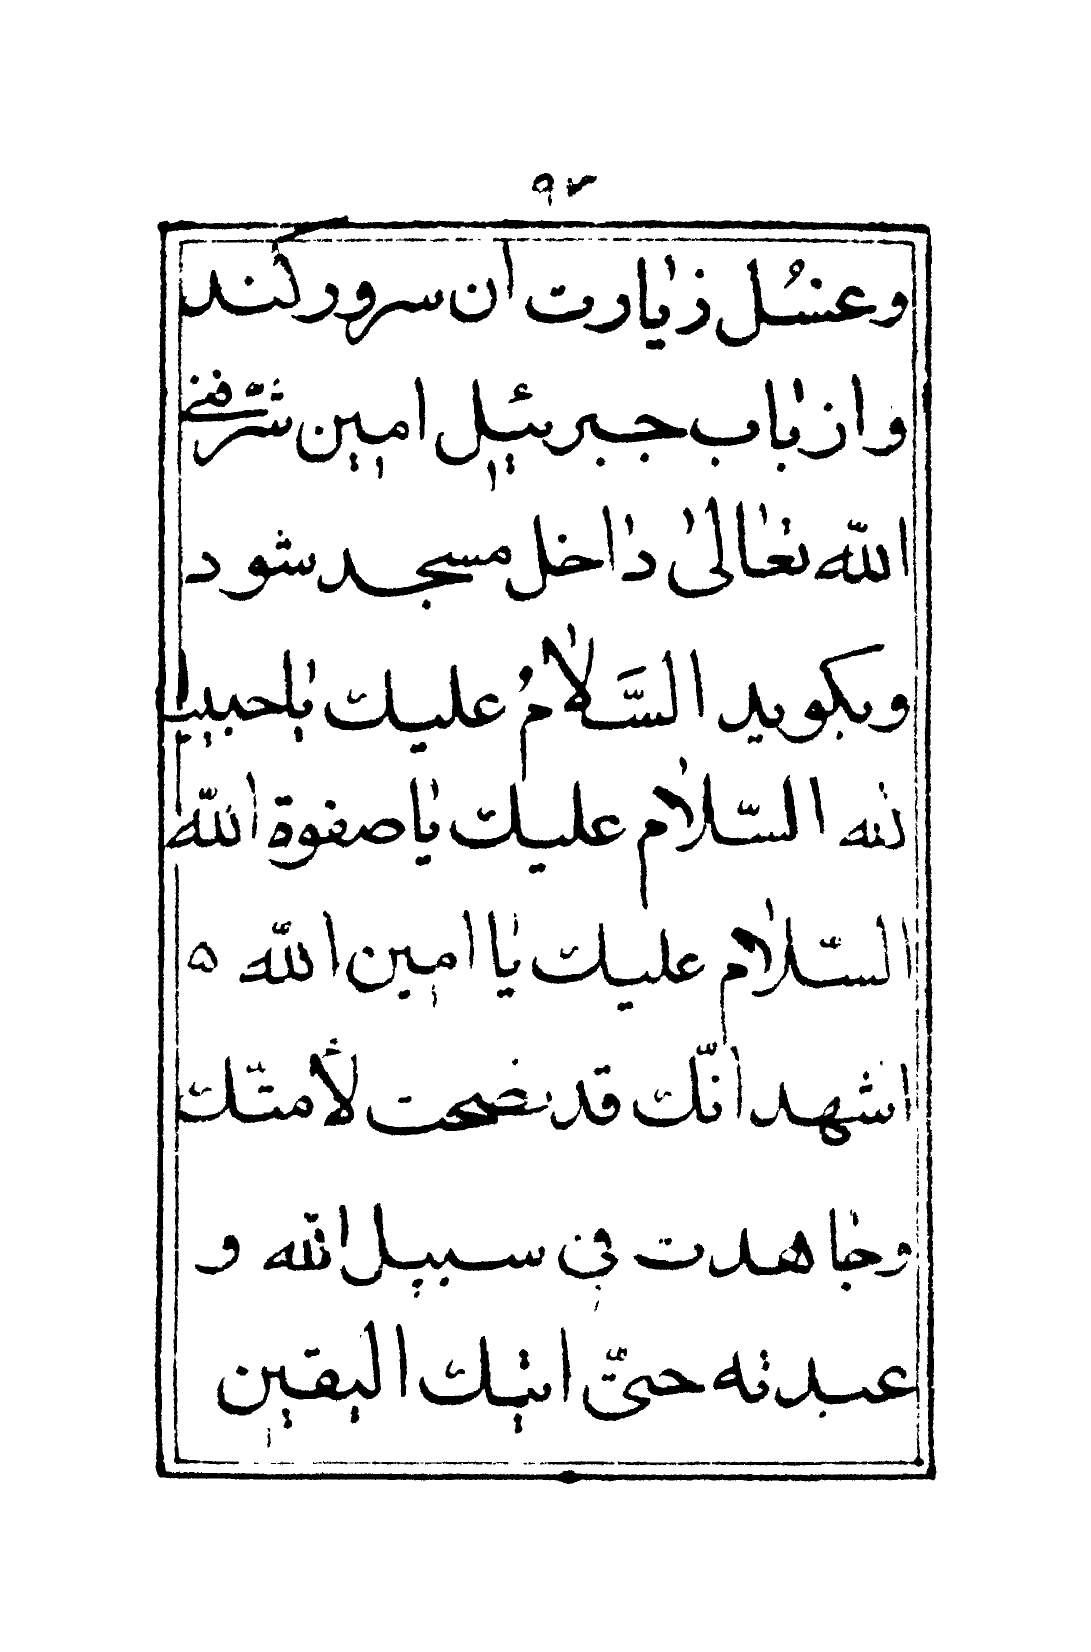 وغسُل زیارت آن سرور کند
و از باب جبرئیل امین شرّفنی
الله تعالیٰ داخل مسجد شود
وبکوید السَّلامُ علیك یاحبیب
الله السّلام علیك یاصفوة الله
السّلام علیك یا امین الله ۵
اشهد انّك قد نضحت لأمتّك
وجاهدت فی سبیل الله و
عبدته حتیّ اتیك الیقین